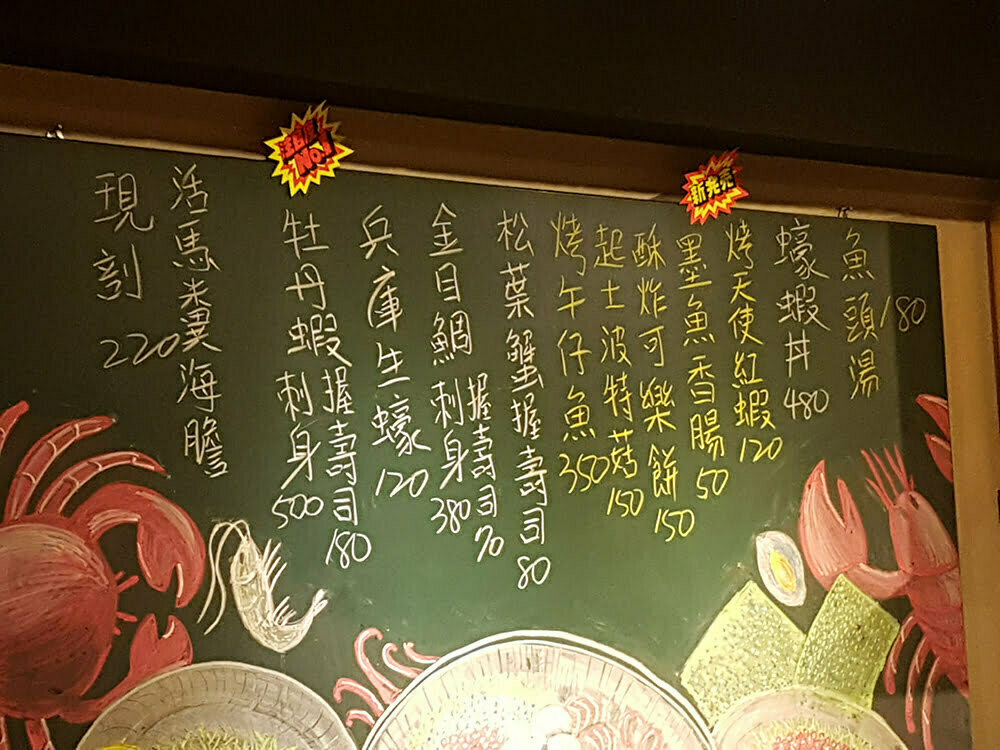 魚頭湯 180
蠔蝦丼 480
烤天使紅蝦 120
墨魚香腸 50
酥炸可樂餅 150
起士波特菇 150
烤午仔魚 350
松葉蟹握壽司 80
金目鯛 刺身 380
握壽司 70
兵庫生蠔 120
牡丹蝦 刺身 500
握壽司 180
活馬糞海膽
現剖 220
注目度!
No.1
新発売